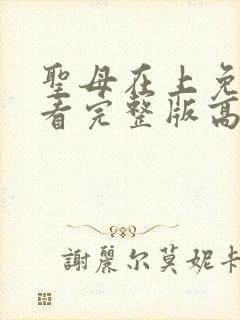 聖母在上免
看完整版高
謝麗尔莫妮卡